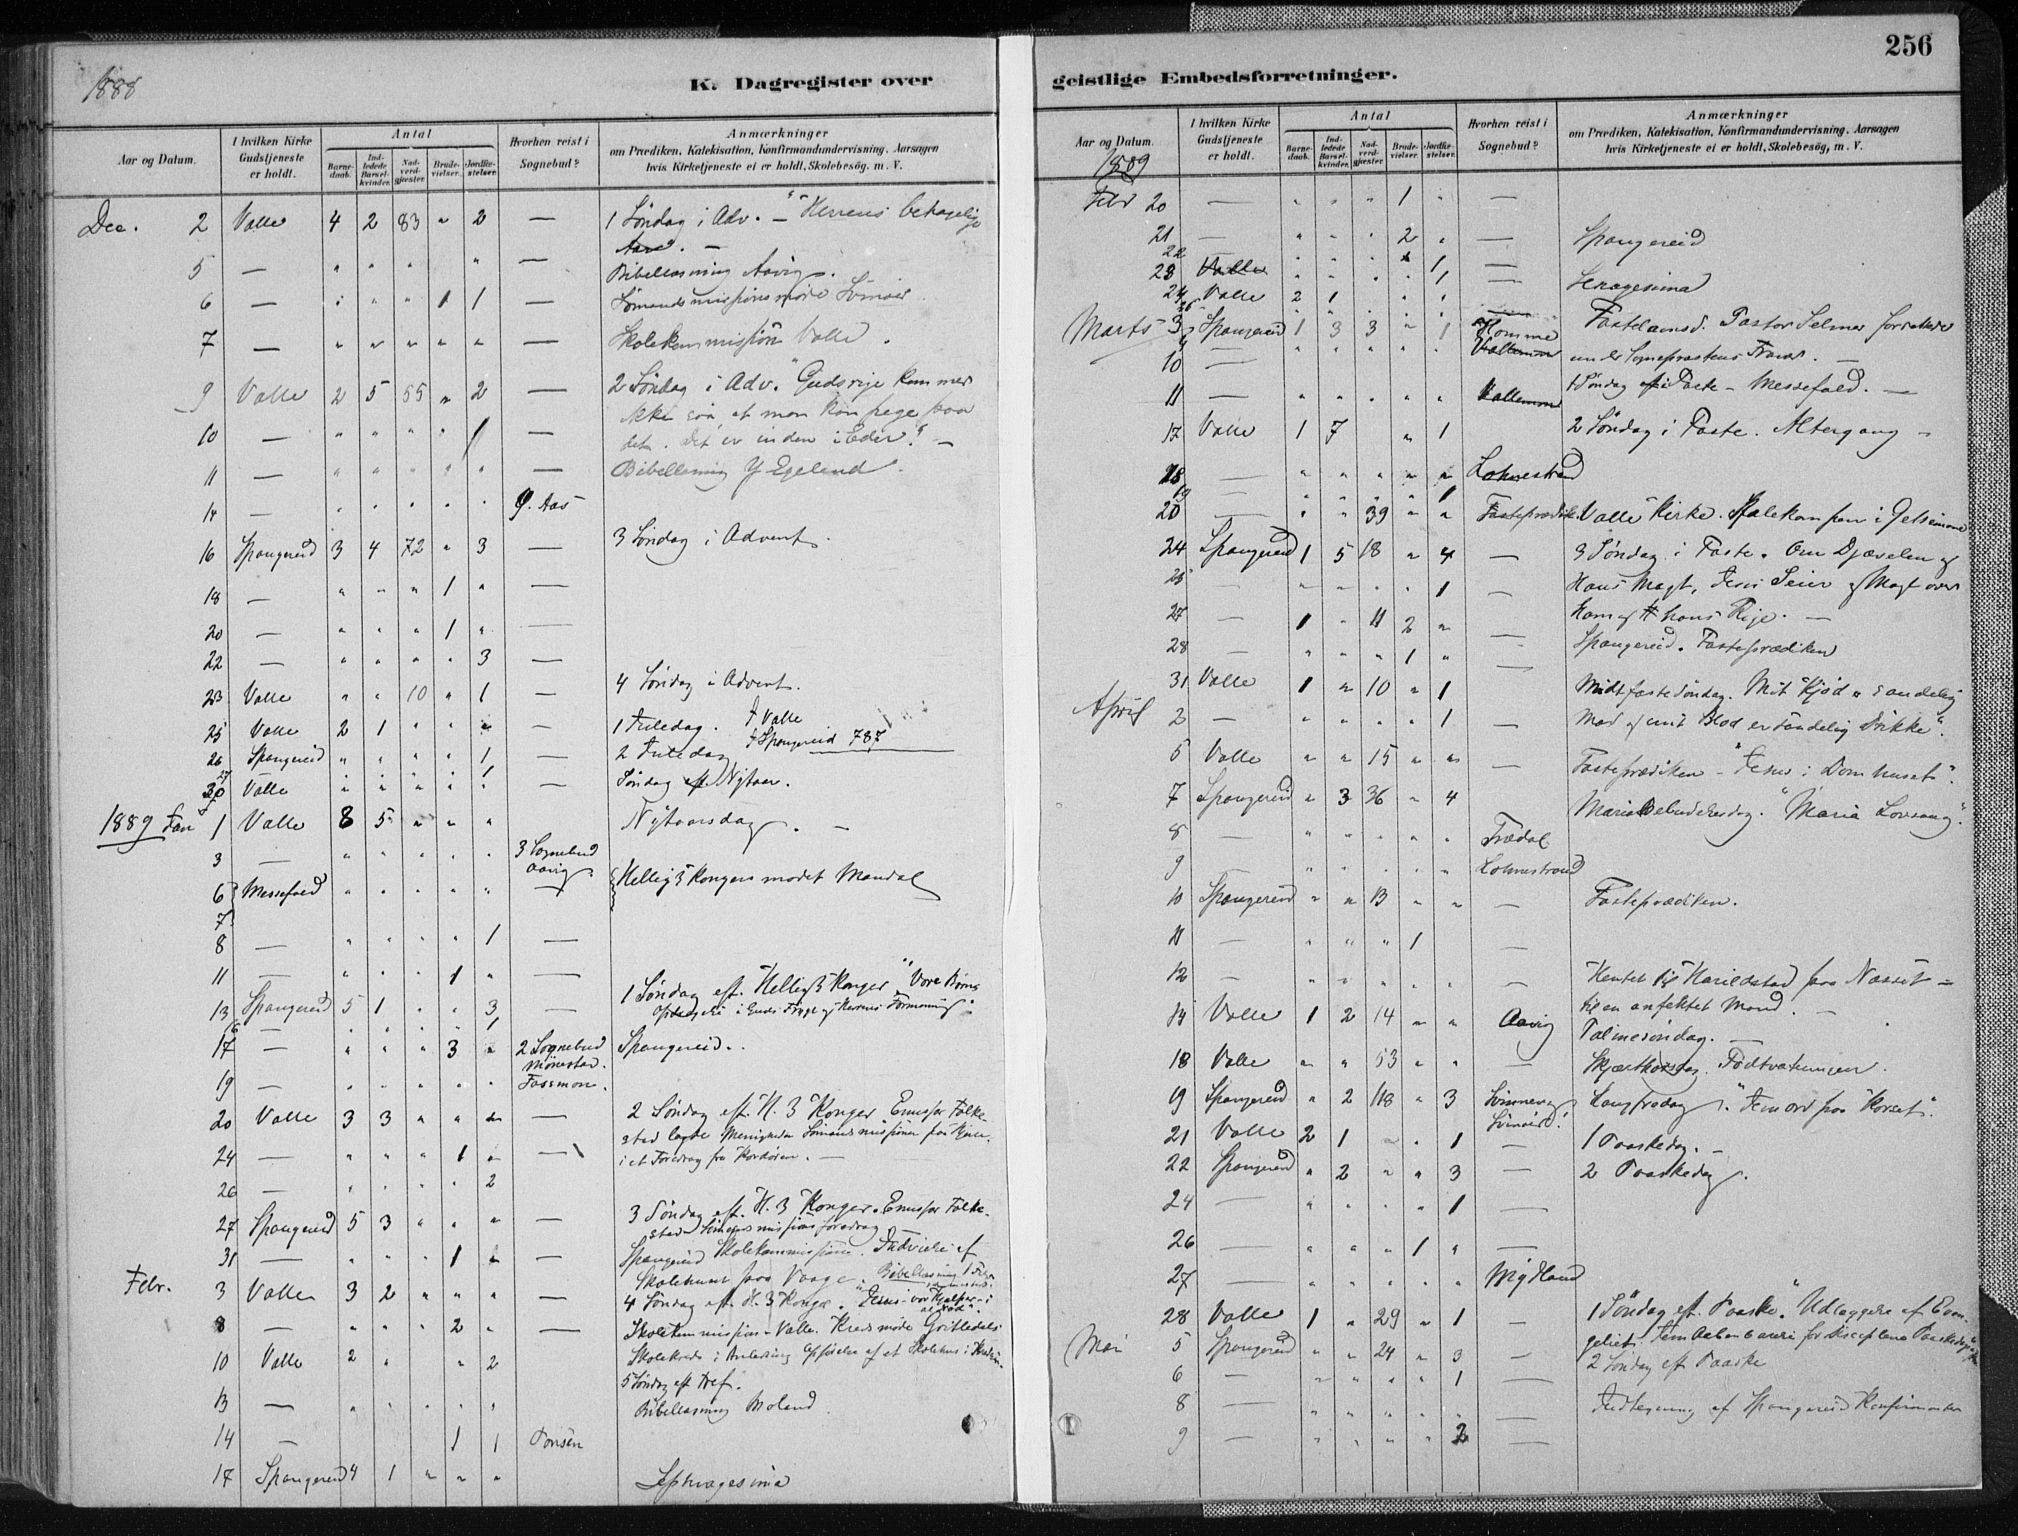 1888
K. Dagregister over
Aar og Datum.
I hvilken Kirke Gudstjeneste er holdt.
Antal
Barnedaab.
Indledede Barselkvinder.
Nadverdgjester.
Brudevielser.
Jordfæstelser.
Hvorhen reist i Sognebud?
Anmærkninger
om Prædiken, Katekisation, Konfirmandundervisning, Aarsagen
hvis Kirketjeneste ei er holdt, Skolebesøg, m. V.
Dec. 2 Valle 4 2 83 " 2 — 1 Søndag i Adv. — "Herrens behagelige
Aar". —
5 — " " " " — Bibellæsning Aavig.
6 — " " " 1 1 — Sømandsmissionsmøde Svinør.
7 — " " " " " — Skolekommission Valle.
9 Valle 2 5 55 " 2 — 2 Søndag i Adv. "Guds rige kommer
ikke saa, at man kan pege paa
10 — " " " " 1 — det. Det er inden i Eder". —
11 — " " " " " — Bibellæsning Y. Egeland.
14 — " " " " " Y. Aas
16 Spangereid 3 4 72 " 3 — 3 Søndag i Advent.
18 — " " " 1 " —
20 — " " " 1 " —
22 — " " " " 3 —
23 Valle " " 10 " 1 — 4 Søndag i Advent.
25 Valle 2 1 " " " — 1 Juledag. Valle
26 Spangereid " " " " 1 — 2 Juledag Spangereid 787
27 1
30 Valle " " " " " — Søndag ef. Nytaar.
1889 Jan 1 Valle 8 5 " " " Nytaarsdag. —
3 — " " " " " 3 Sognebud
Aavig.
6 Messefald " " " " " — Hellig 3 Kongers mødet Mandal
7
8 — " " " " 1 —
11 — " " " 1 " —
13 Spangereid 5 1 " " 3 — 1 Søndag eft. Hellig 3 Konger "Vore Børns
i Guds Frygt og Herrens Formaning".
16 — " " " " 1
17 — " " " 3 " 2 Sognebud Spangereid.
Mønestad.
19 — " " " " " Fossmon.
20 Valle 3 3 " " " — 2 Søndag eft. H. 3 Konger. Emissær Folke-
stad lagde Menigheden Sømandsmissionen paa Hjerte
24 — " " " 1 " — i et Foredrag fra Kordøren. —
26 — " " " " 2
27 Spangereid 5 3 " " " — 3 Søndag eft. H. 3 Konger. Emissær Folke-
stad Sømandsmissionsforedrag
31 — " " " 1 " — Spangereid Skolekommission. Indvielse af
Skolehuset paa Vaage. Bibellæsning
Febr. 3 Valle 3 2 " " " — 4 Søndag eft. H. 3 Konger. "Jesus vor Hjælper i
al Nød".
8 — " " " 2 " — Skolekommission Valle. Kredsmøde
10 Valle 2 " " " 2 Skolekreds i Anledning Opførelse af et Skolehus i
5 Søndag eft
13 — " " " " " Bibellæsning Moland.
14 — " " " 1 1
17 Spangereid 4 1 " " " Septuagesima
256
geistlige Embedsforretninger.
Aar og Datum.
I hvilken Kirke Gudstjeneste er holdt.
Antal
Barnedaab.
Indledede Barselkvinder.
Nadverdgjester.
Brudevielser.
Jordfæstelser.
Hvorhen reist i Sognebud?
Anmærkninger
om Prædiken, Katekisation, Konfirmandundervisning, Aarsagen
hvis Kirketjeneste ei er holdt, Skolebesøg, m. V.
1889
Febr 20 — " " " 1 " —
21 — " " " 2 " — Spangereid
22 1
23 Valle " " " " 1 —
24 Valle 2 1 " " " Sexagesima
26
Marts 3 Spangereid 1 3 3 " 1 Homme Fastelavnsd. Pastor Selmer forrettede
4 Vallemoen under Sognepræstens Fravær. —
10 — 1 Søndag i Faste — Messefald. —
11 — " " " " " Vallemoen
17 Valle 1 7 " 1 2 Søndag i Faste. Altergang —
18 — " " " " " Lohnestrand
19 1
20 — " " 39 " " Fasteprædik. Valle Kirke. Sjælekampen i Getsemane
24 Spangereid 1 5 18 " 4 — 3 Søndag i Faste. Om Djævelen og
25 — " " " " 1 Hans Magt, Jesu Seier og Magt over
27 — 1 " 11 2 " — ham og hans Rige. —
28 — " " " 1 " — Spangereid. Fasteprædiken
31 Valle 1 " 10 " 1 Midtfastesøndag. Mit "Kjød er sandelig
April 2 — " " " " 1 — Mad og mit Blod er sandelig Drikke".
5 Valle " " 15 " " — Fasteprædiken — "Jesus i Domhuset".
7 Spangereid " 3 36 " 4 Mariæ Bebudelsesdag. "Maria Lovsang".
8 — " " " " " Trædal
9 — " " " " " Lohnestrand
10 Spangereid " " 13 " " — Fasteprædiken.
11 — " " " 1 —
12 — " " " " " — Hentet til Harildstad paa Næsset —
til en anfektet Mand. —
14 Valle 1 2 14 " " Aavig Palmesøndag. —
18 Valle " " 53 " " Skjærthorsdag. Fodtvætningen.
19 Spangereid " 2 118 " 3 Langfredag. "Jesu ord paa Korset".
21 Valle 2 1 " " 1 — 1 Paaskedag. —
22 Spangereid " 2 " " 3 — 2 Paaskedag.
24 — " " " " 1 —
26 — " " " 1 " —
27 — " " " " " Mydland
28 Valle 1 " 29 " 1 — 1 Søndag eft. Paaske. Udlæggelse af Evan-
geliet. Jesu Aabenbarelse for Disciplene
Mai 5 Spangereid " " 24 " 3 — 2 Søndag eft Paaske
6 — " " " " 1 —
8 — " " " " " — Indtegning af Spangereid Konfirmanter
9 — " " " " 2 —